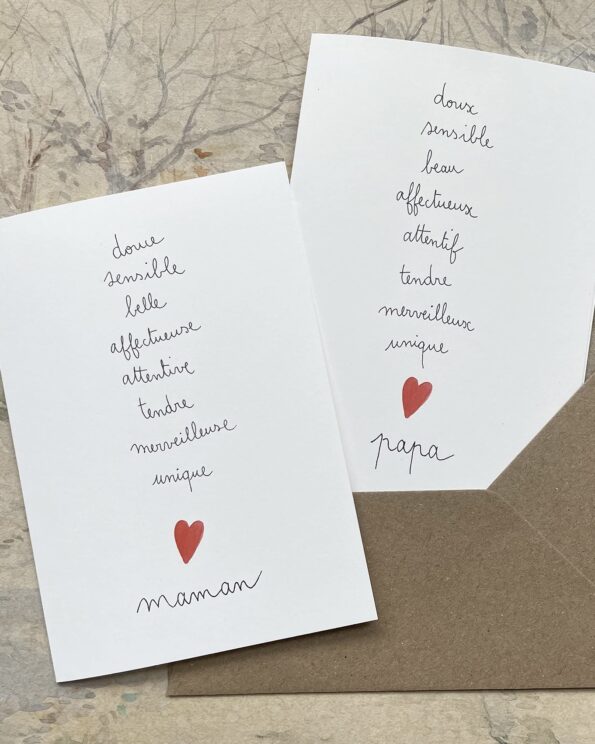 douce
sensible
belle
affectueuse
attentive
tendre
merveilleuse
unique
maman
doux
sensible
beau
affectueux
attentif
tendre
merveilleux
unique
papa